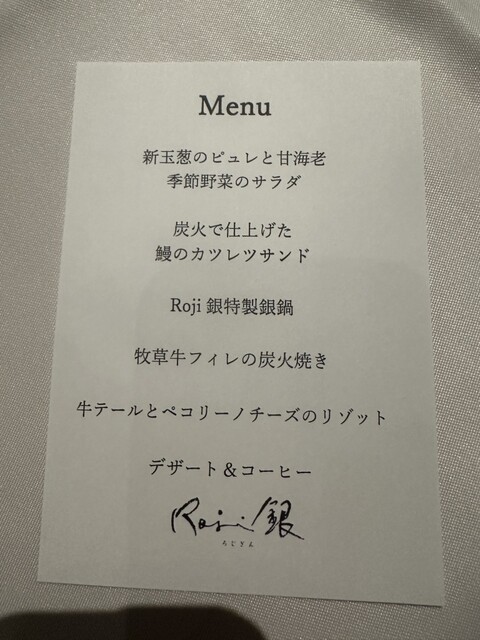 Menu
新玉葱のピュレと甘海老
季節野菜のサラダ
炭火で仕上げた
鰻のカツレツサンド
Roji 銀特製銀鍋
牧草牛フィレの炭火焼き
牛テールとペコリーノチーズのリゾット
デザート＆コーヒー
Roji 銀
ろじぎん